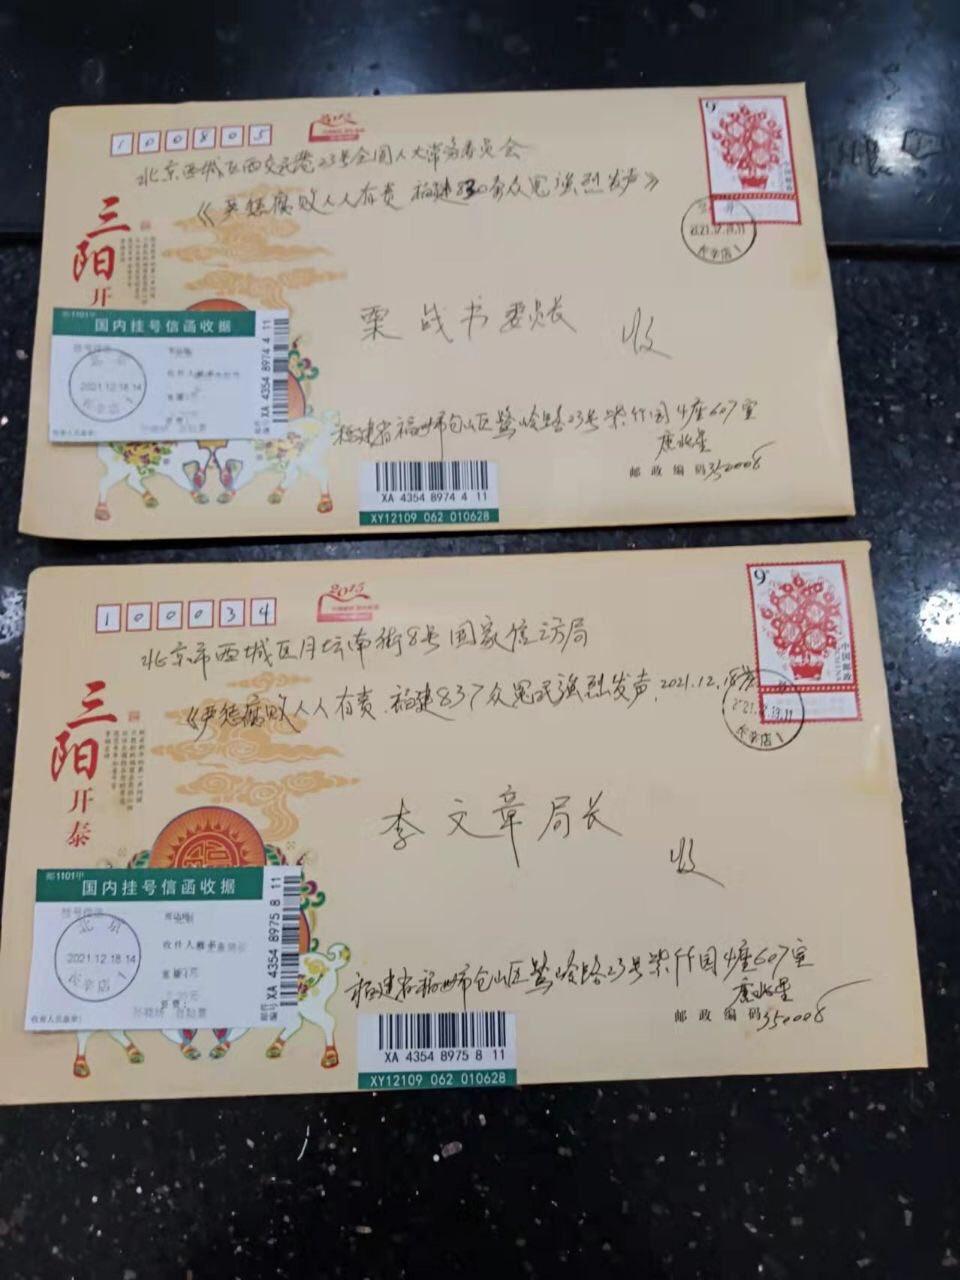 100805
北京西城区西交民巷23号全国人大常务委员会
《严惩腐败人人有责 福建830余众冤强烈发声》
9
中国邮政
三阳开
邮1101甲
国内挂号信函收据
XA 4354 8974 4 11
2021.12.18.14
东辛店1
收件人
2021.12.19.11
东辛店1
栗战书委员长
收
福建省福州市仓山区鳌岭路23号紫竹园4座607室
XA 4354 8974 4 11
XY12109 062 010628
邮政编码350008
100034
2015
北京市西城区月坛南街8号国家信访局
《严惩腐败人人有责.福建837众冤民强烈发声.2021.12.18
9
中国邮政
CHINA
2021.12.19.11
东辛店1
三阳开泰
李文章局长
收
邮1101甲
国内挂号信函收据
XA 4354 8975 8 11
北京
2021.12.18.14
东辛店1
收件人
福建省福州市仓山区鳌岭路23号紫竹园4座607室
XA 4354 8975 8 11
XY12109 062 010628
邮政编码350008